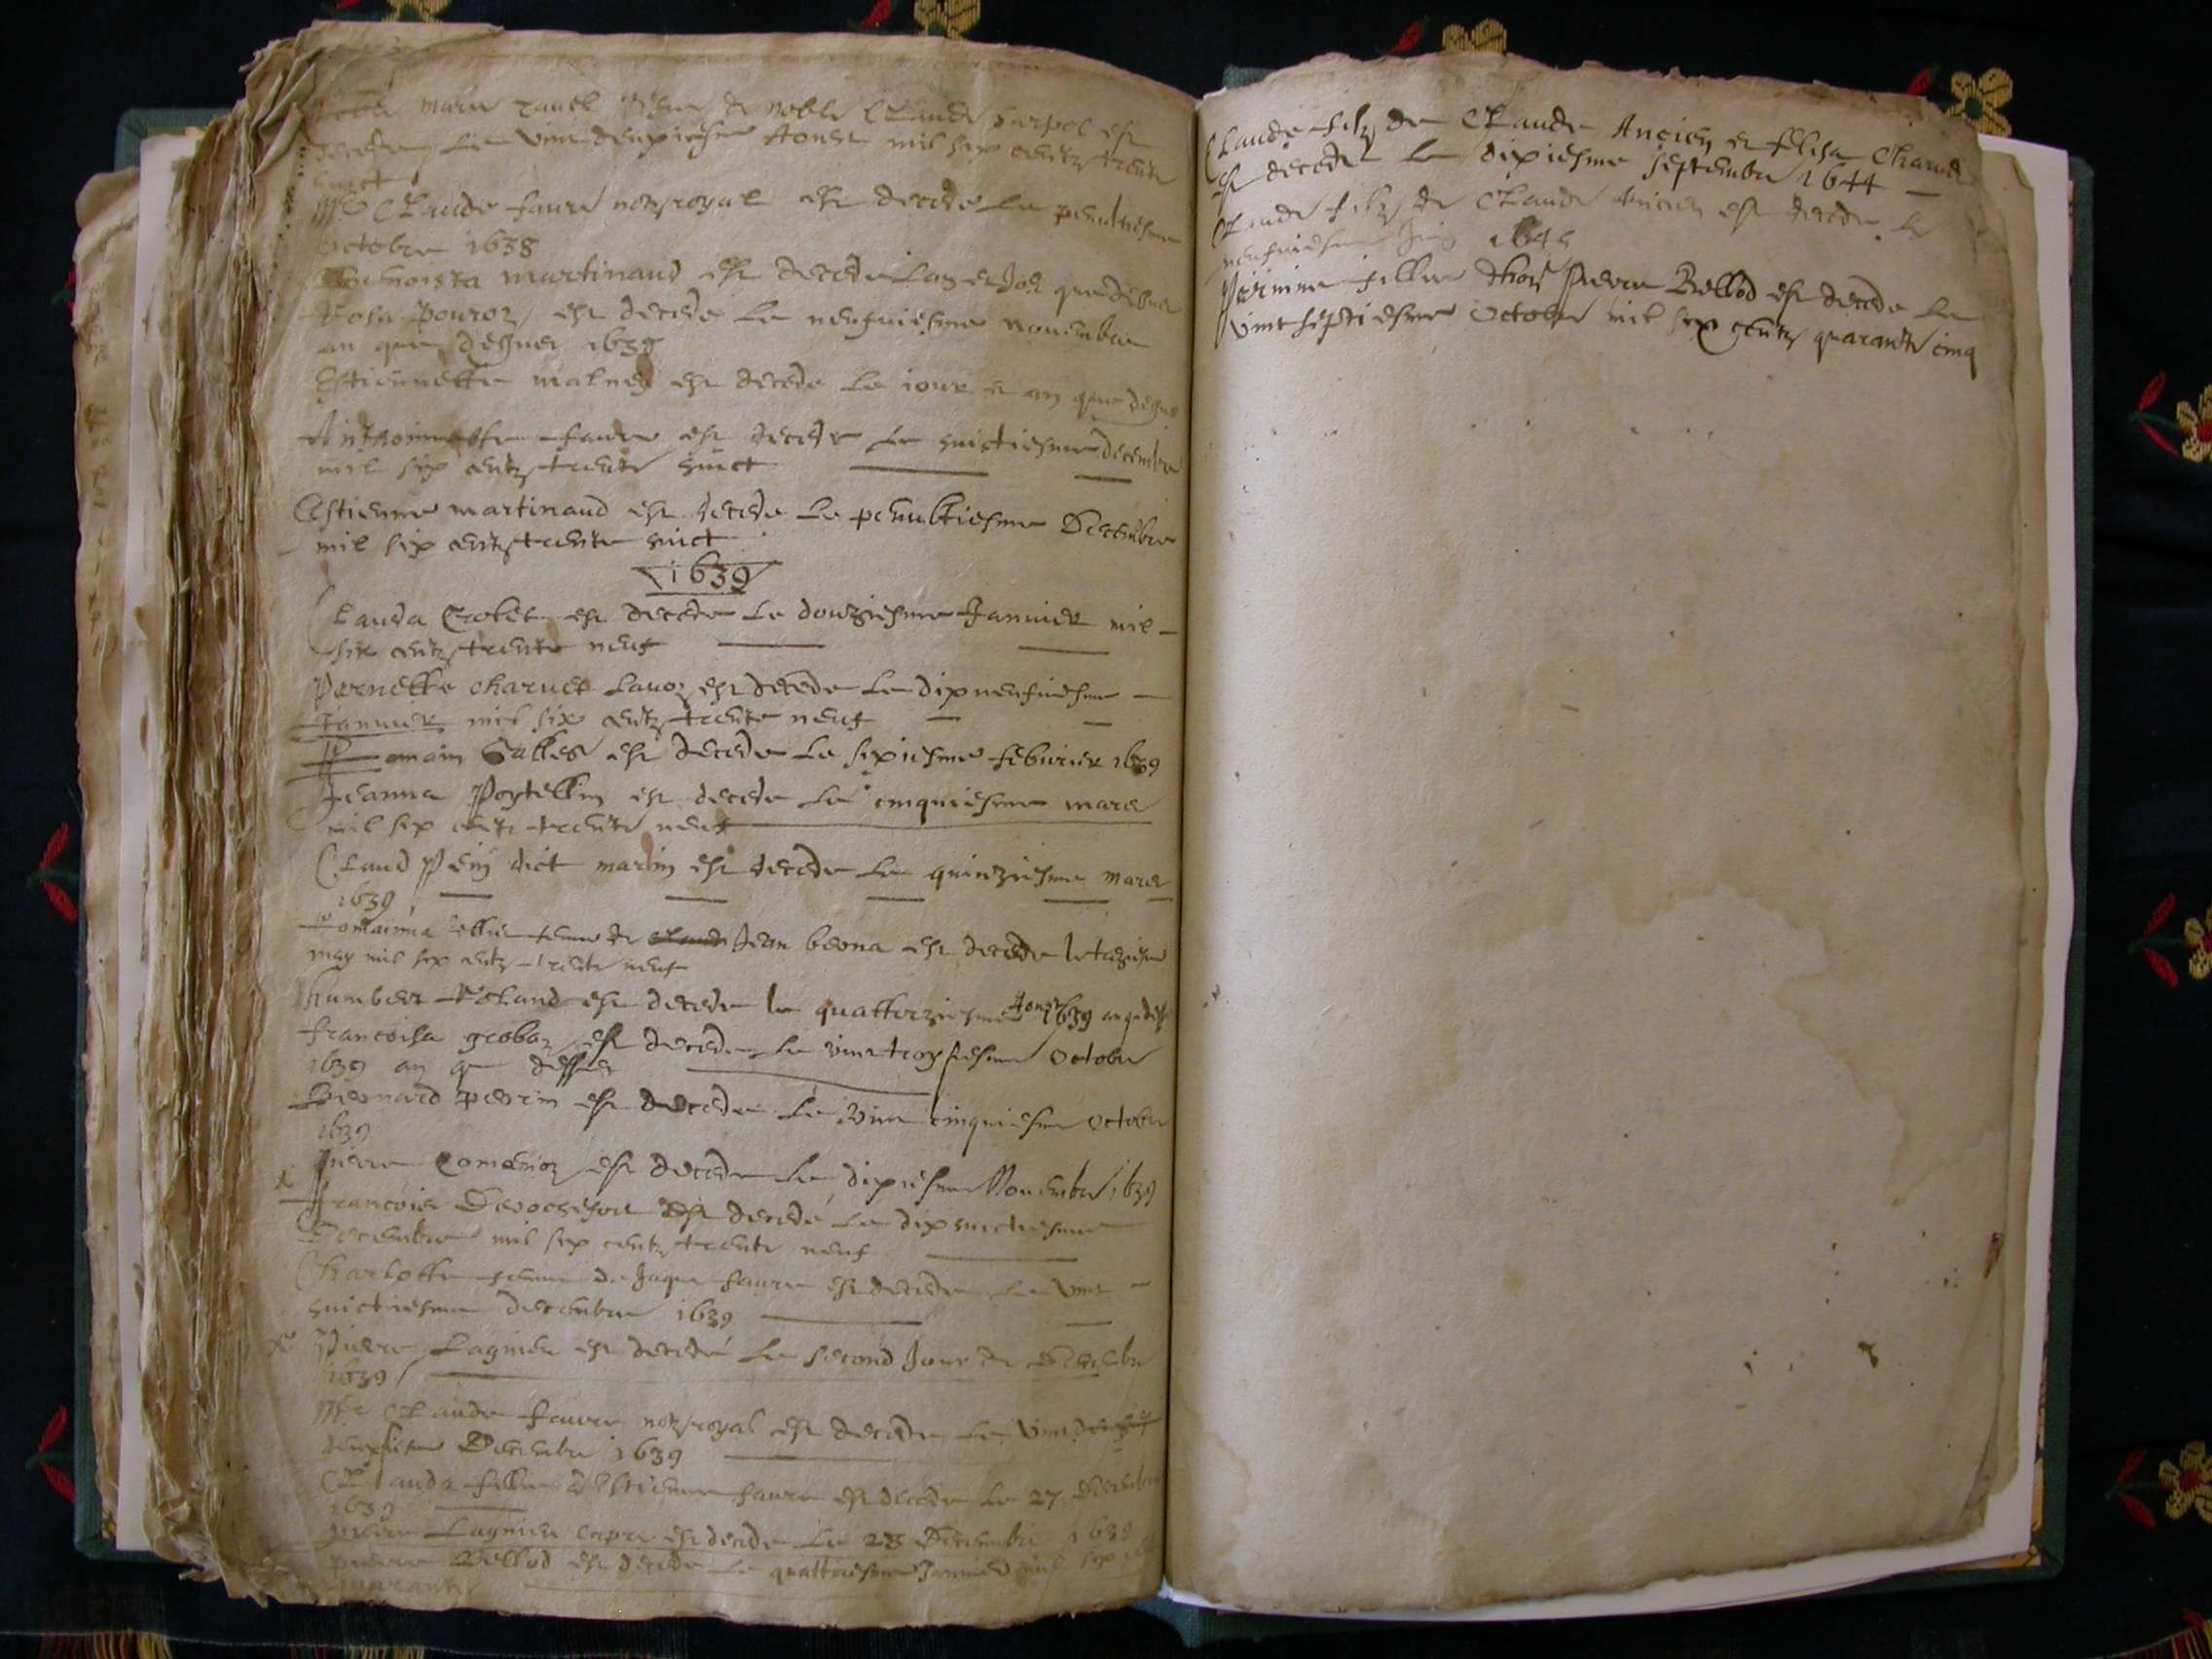 marie ravel de noble Claude darpol est
decede le vint deuxiesme Aoust mil six centz trente
huict
Mre Claude faure notre royal est decede le penultiesme
octobre 1638
martinand est decede que dessus
Rosa Pouroz est decede le neufuiesme nouembre
an que dessus 1638
Estiennette malnez est decede le iour et an que dessus
Anthoinette faure est decede le huictiesme decembre
mil six centz trente huict
Estienne martinand est decede le penultiesme Decembre
mil six centz trente huict
1639
Clauda Crotet est decede le douziesme Januier mil
six centz trente neuf
Pernette charuet est decede le dix neufuiesme
Januier mil six centz trente neuf
Romain Galles est decede le sixiesme feburier 1639
Jeanna Poytellin est decede le cinquiesme mars
mil six centz trente neuf
Claud dict martin est decede le quinziesme mars
1639
Romaina feme de Claude Jean beona est decede le
may mil six centz trente neuf
humbert Roland est decede le quattorziesme Aoust 1639 an q dess
francoisa grobaz est decede le vint troysiesme octobre
1639 an q dessus
Bernard perrin est decede le vint cinquiesme octobre
1639
Pierre Comanioz est decede le dixiesme Nouembre 1639
francois Derochefort est decedé le dix huictiesme
Decembre mil six centz trente neuf
Charlotte feme de Jaque faure est decede le vint
huictiesme decembre 1639
Pierre Lagnieu est decedé le second Jour de Decembre
1639
Mre Claude faure notre royal est decede le vint
deuxiesme Decembre 1639
Clauda fille d Estienne faure est decede le 27 Decembre
1639
Pierre Lagnieu est decede le 28 Decembre 1639
pierre Bellod est decede le quattriesme Januier mil six
quarante
Claude filz de Claude Ancien et Elisa Charuet
est decede le dixiesme septembre 1644
Claude filz de Claude Ancien est decede le
neufuiesme 1645
Pernine fille dhon Pierre Bellod est decede le
vint septiesme octobre mil six centz quarante cinq